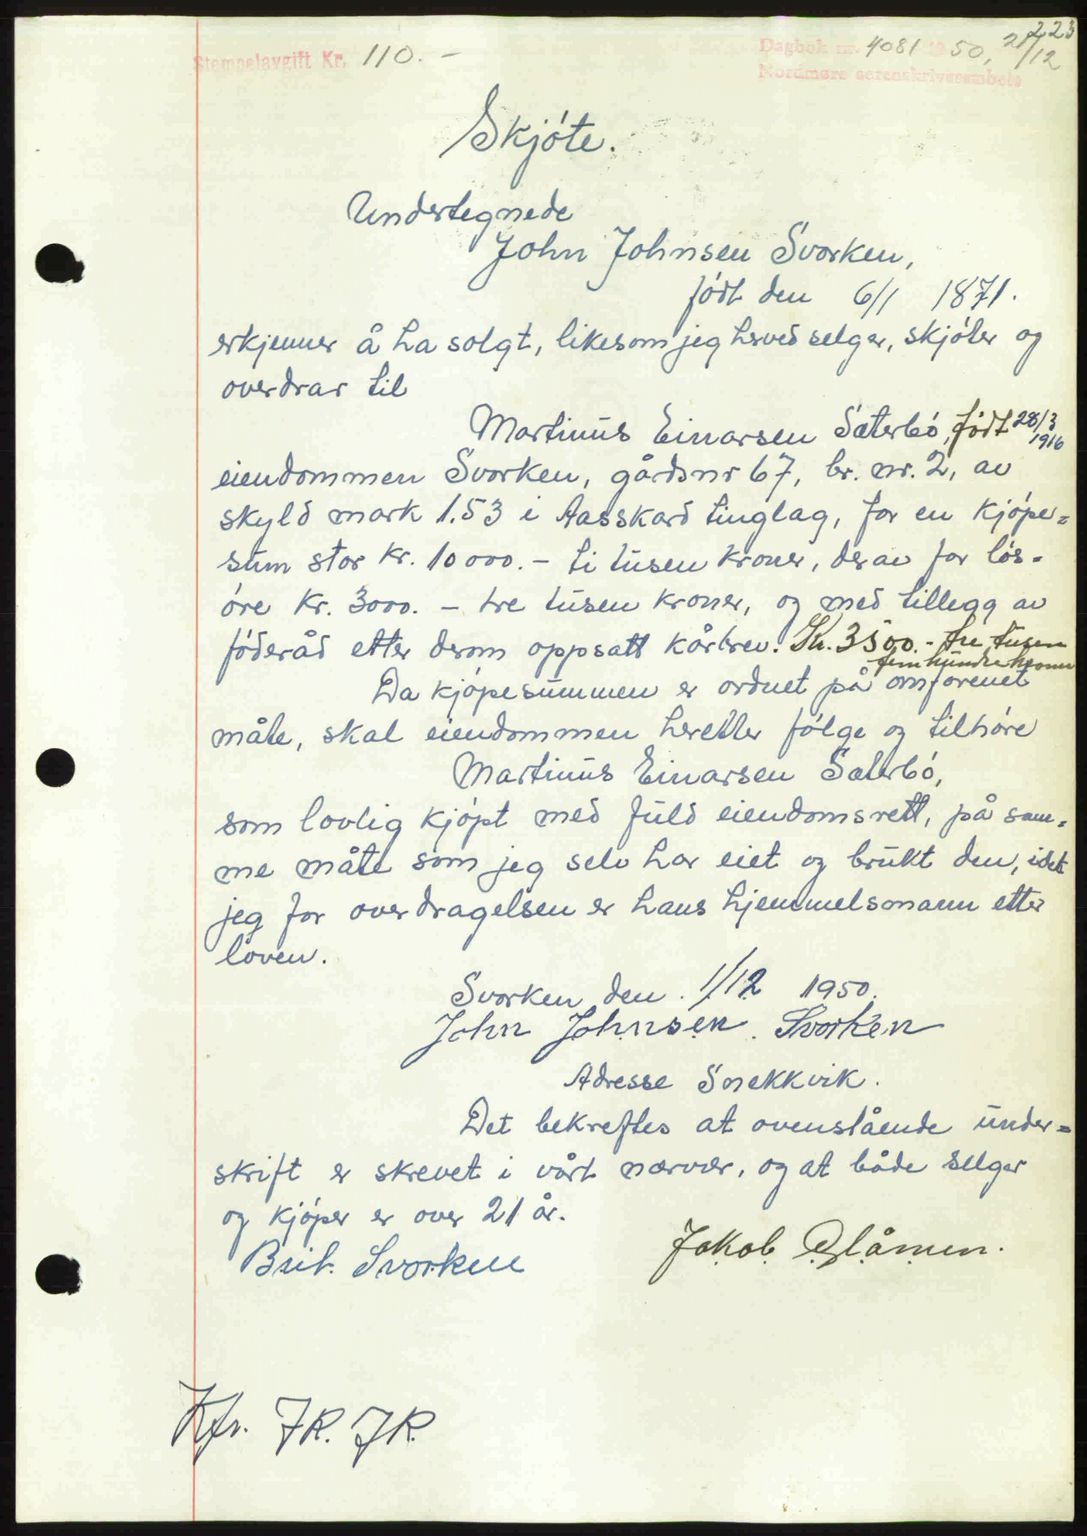 223
Stempelavgift Kr. 110.-
Dagbok nr. 4081 1950, 21/12
Nordmøre sorenskriverembete
Skjøte.
Undertegnede
John Johnsen Svorken,
født den 6/1 1871.
erkjenner å ha solgt, likesom jeg herved selger, skjøter og
overdrar til
Martinus Einarsen Sæterbø, født 28/3 1916
eiendommen Svorken, gårdsnr 67, br. nr. 2, av
skyld mark 1.53 i Aasskard tinglag, for en kjøpe=
sum stor kr. 10000.- ti tusen kroner, derav for løs-
øre kr. 3000. - tre tusen kroner, og med tillegg av
føderåd etter derom oppsatt kårbrev. Kr. 3500.- tre tusen
fem hundre kroner
Da kjøpesummen er ordnet på omforenet
måte, skal eiendommen heretter følge og tilhøre
Martinus Einarsen Sæterbø,
som lovlig kjøpt med fuld eiendomsrett, på sam=
me måte som jeg selv har eiet og brukt den, idet
jeg for overdragelsen er hans hjemmelsmann etter
loven.
Svorken den 1/12 1950.
John Johnsen Svorken
Adresse Snekkvik.
Det bekreftes at ovenstående under=
skrift er skrevet i vårt nærvær, og at både selger
og kjøper er over 21 år.
Brit Svorken Jakob Glåmen.
Kfr. JR. JR